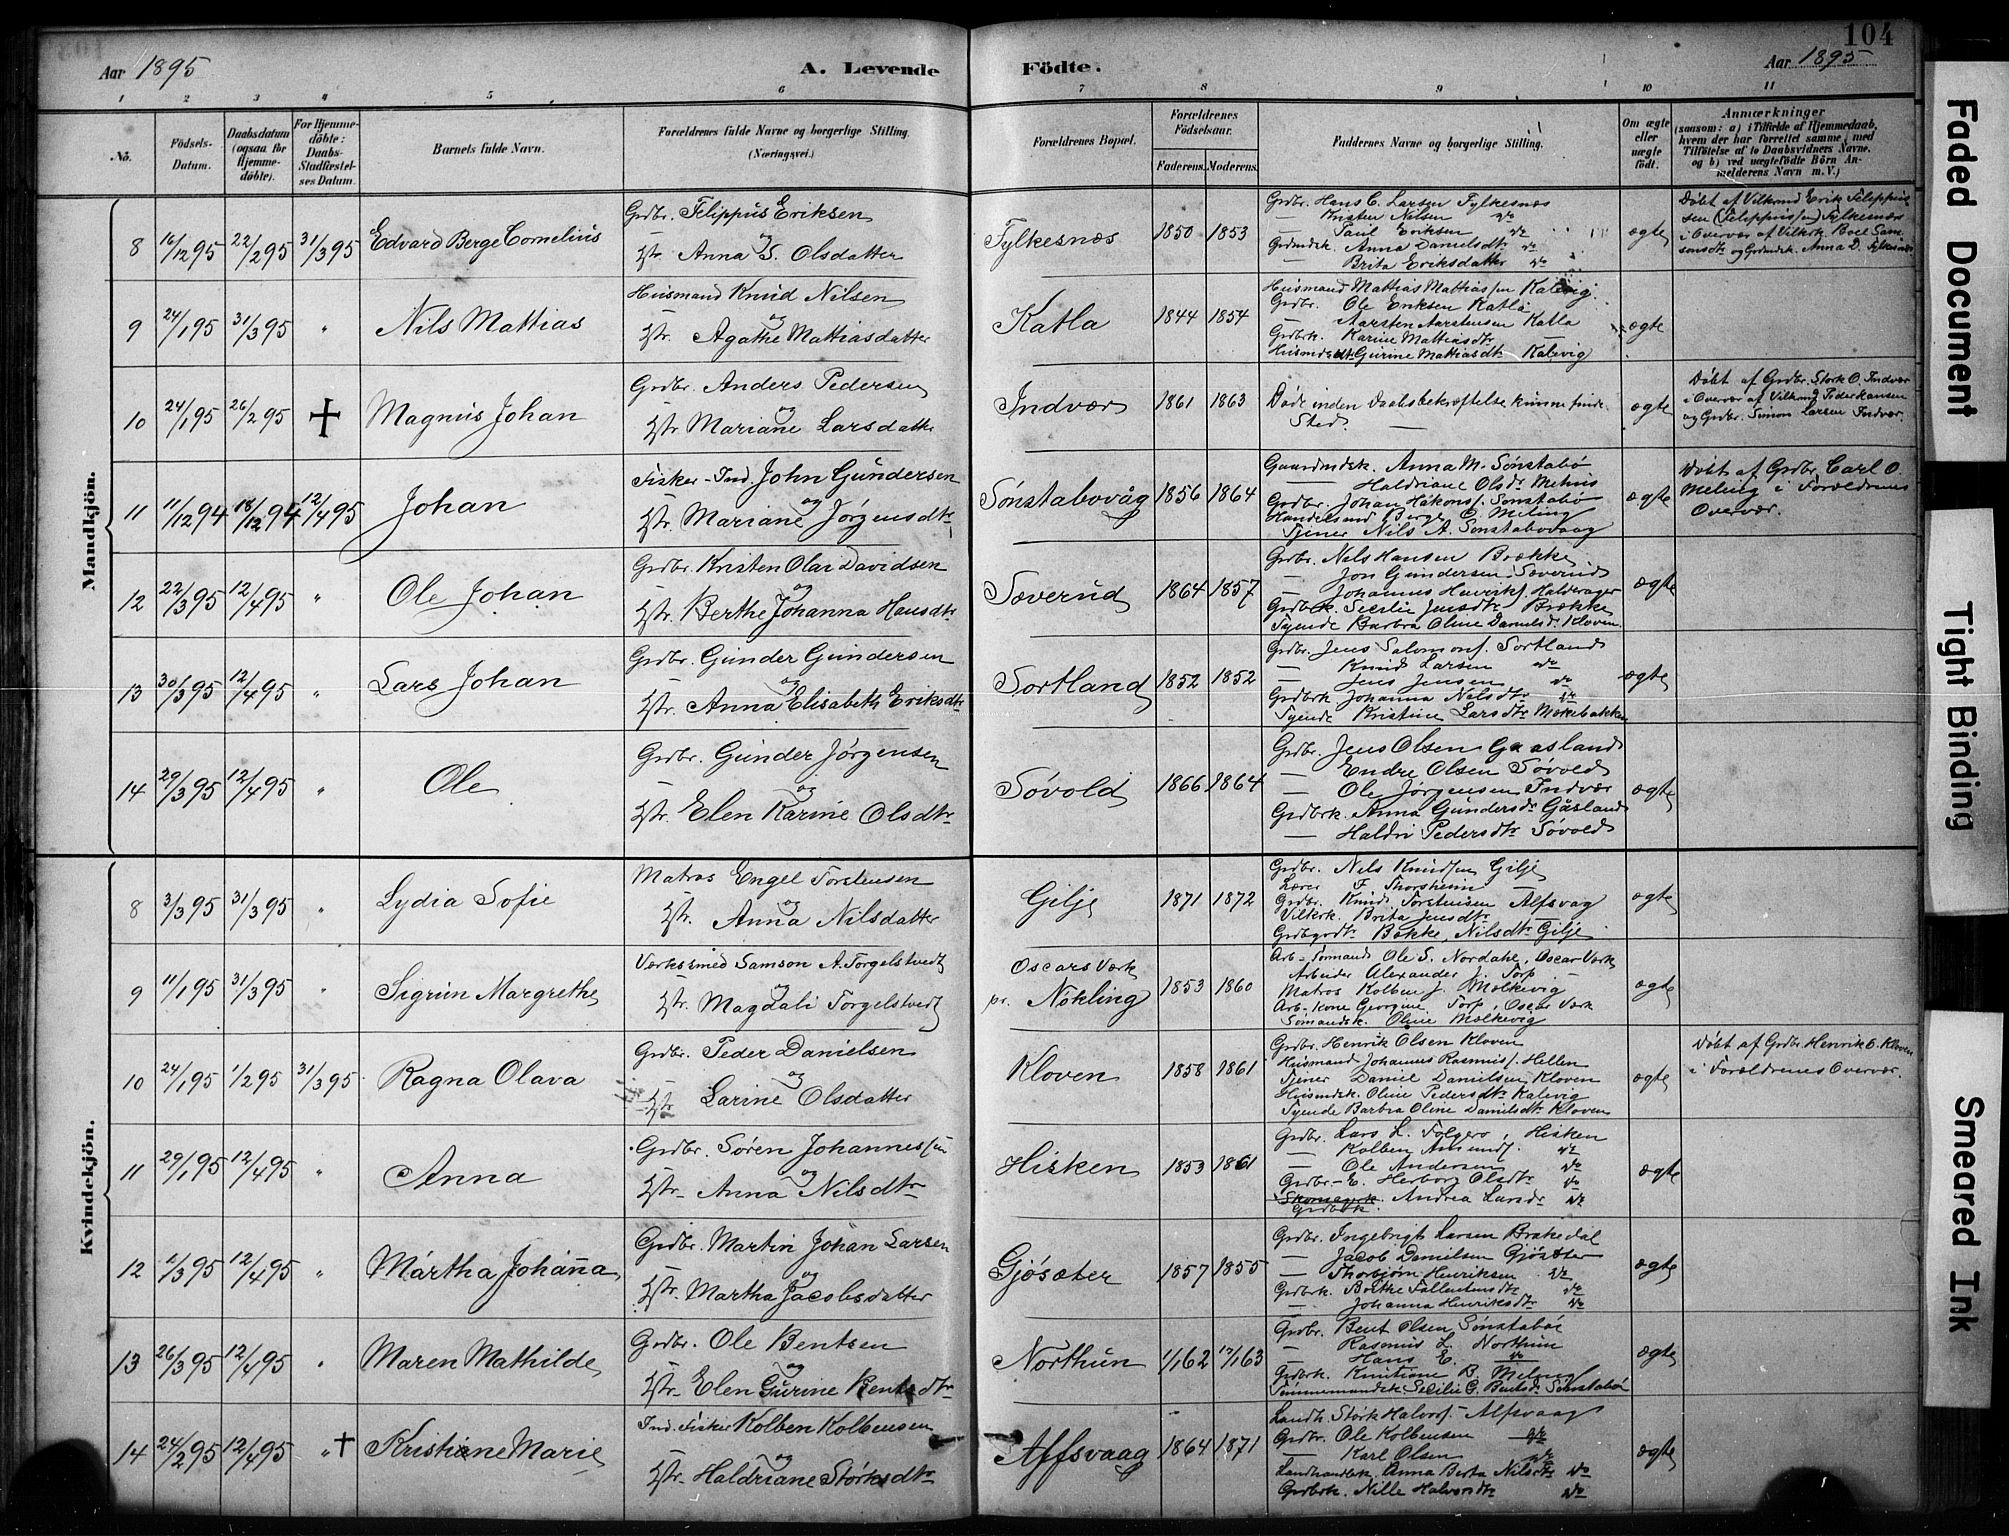 104
Aar 1895
A. Levende
Födte.
Aar 1895
1 2 3 4 5 6 7 8 9 10 11
No.
Födsels-Datum.
Daabsdatum (ogsaa for Hjemme-döbte).
For Hjemme-döbte: Daabs-Stadfæstel-ses Datum.
Barnets fulde Navn.
Forældrenes fulde Navne og borgerlige Stilling. (Næringsvei.)
Forældrenes Bopæl.
Forældrenes Födselsaar.
Faderens. Moderens.
Faddernes Navne og borgerlige Stilling.
Om ægte eller uægte födt.
Anmærkninger
(saasom: a) i Tilfælde af Hjemmedaab,
hvem der har forrettet samme, med
Tilföielse af to Daabsvidners Navne,
og b) ved uægtefödte Börn An-
melderens Navn m. V.)
Mandkjön.
8 16/12 95 22/2 95 31/3 95 Edvard Berge Cornelius
Grdbr. Filippus Eriksen
og
Hstr. Anna S. Olsdatter
Fylkesnæs 1850 1853
Grdbr. Hans C. Larsen Fylkesnæs
— Kristen Nilsen do
— Paul Eriksen do
Grdmdsk. Anna Danielsdtr do
Brita Eriksdatter do
ægte
Døbt af Vilkmd Erik Filippus-
sen (Filippussen) Fylkesnæs
i Overvær af Vilkrk. Boel Sam-
sonsdtr og Grdmdsk. Anna D. Fylkesnæs
9 24/1 95 31/3 95 " Nils Mattias
Husmand Knud Nilsen
og
Hstr. Agathe Mattiasdatter
Katla 1844 1854
Husmand Mattias Mattiassen Kalevig
Grdbr. Ole Eriksen Katla
— Aarsten Aarstensen Katla
Grdbrk. Karine Mattiasdtr —
Husmdsdtr Gurine Mattiasdtr Kalevig
ægte
10 24/1 95 26/2 95 ✝ Magnus Johan
Grdbr. Anders Pedersen
og
Hstr. Mariane Larsdatter
Indvær 1861 1863
Døde inden Daabsbekræftelse kunne finde
Sted. —
ægte
Døbt af Grdbr. Stork O. Indvær
i Overvær af Vilkmd Peder Hansen
og Grdbr. Simon Larsen Indvær.
11 11/12 94 18/12 94 12/4 95 Johan
Fisker-Ind. John Gundersen
og
Hstr. Mariane Jørgensdtr
Sønstabovåg 1856 1864
Gaardmdsk. Anna M. Sønstabø
— Haldriane Olsdtr Mehus
Grdbr. Johan Håkons. Sønstabø
Handelsmd Berge O. Meling
Tjener Nils A. Sønstabovaag
ægte
Døbt af Grdbr. Carl O.
Meling i Forældrenes
Overvær.
12 22/3 95 12/4 95 " Ole Johan
Grdbr. Kristen Olai Davidsen
og
Hstr. Berthe Johanna Hansdtr
Sæverud 1864 1857
Grdbr. Nils Hansen Brække
— Jon Gundersen Sæverud
— Johannes Henriks. Haldorager
Grdbrk. Sesilie Jensdtr Brække
Tyende Barbra Oline Danielsd. Kloven
ægte
13 30/3 95 12/4 95 " Lars Johan
Grdbr. Gunder Gundersen
og
Hstr. Anna Elisabeth Eriksdtr
Sortland 1852 1852
Grdbr. Jens Salomons. Sortland
— Knud Larsen do
— Jens Jensen do
Grdbrk Johanna Nilsdtr do
Tyende Kristine Larsdtr
ægte
14 29/3 95 12/4 95 " Ole
Grdbr. Gunder Jørgensen
og
Hstr. Elen Karine Olsdtr
Søvold 1866 1864
Grdbr. Jens Olsen Gaasland
— Endre Olsen Søvold
— Ole Jørgensen Indvær
Grdbrk. Anna Gundersdr Gåsland
— Haldri Pedersdtr Søvold
ægte
Kvindekjön.
8 3/3 95 31/3 95 " Lydia Sofie
Matros Engel Torstensen
og
Hstr. Anna Nilsdatter
Gilje 1871 1872
Grdbr. Nils Knudsen Gilje
Lærer F. Thorsheim —
Grdbr. Knud Torstensen Alfsvag
Vilkrk. Brita Jensdtr —
Bakke Nilsdtr Gilje
ægte
9 11/1 95 31/3 95 " Sigrun Margrethe
Værksmed Samson A. Torgelstvedt
og
Hstr. Magdali Torgelstvedt
Oscars Værk
pr. Nøkling 1853 1860
Arb-Formand Ole S. Nordahl, Oscar Værk
Arbeider Alexander J. Torp —
Matros Kolben J. Mølkevig
Arb-Kone Georgine Torp, Oscar Værk
Sømandsk. Oline Mølkevig
ægte
10 24/1 95 1/2 95 31/3 95 Ragna Olava
Grdbr. Peder Danielsen
og
Hstr. Larine Olsdatter
Kloven 1858 1861
Grdbr. Henrik Olsen Kloven
Husmand Johannes Rasmuss. Hellen
Tjener Daniel Danielsen Kloven
Husmdsk. Oline Pedersdtr Kalevig
Tyende Barbra Oline Danielsdtr Kloven
ægte
Døbt af Grdbr Henrik O. Kloven
i Forældrenes Overvær.
11 29/1 95 12/4 95 " Anna
Grdbr. Søren Johannessen
og
Hstr. Anna Nilsdtr
Hisken 1853 1861
Grdbr. Lars L. Folgerø, Hisken
— Kolben Amunds. do
— Ole Andersen do
Grdbr-E. Herborg Olsdtr do
Grdbrk. Andrea Larsdr do
ægte
12 1/3 95 12/4 95 " Martha Johanna
Grdbr. Martin Johan Larsen
og
Hstr. Martha Jacobsdatter
Gjøsæter 1857 1855
Grdbr. Ingebrigt Larsen Brakedal
— Jacob Danielsen Gjøsæter
— Thorbjørn Henriksen do
Grdbrk. Berthe Fallentensdtr do
— Johanna Henriksdtr do
ægte
13 26/3 95 12/4 95 " Maren Mathilde
Grdbr. Ole Bentsen
og
Hstr. Elen Gurine Bentsdtr
Northun 1/1 62 17/1 63
Grdbr. Bent Olsen Sønstabøe
— Rasmus L. Northun
— Hans E. do
Grdbrk. Knutiane B.
Tømmermandsk. Secilie G. Bentsd. Sønstabø
ægte
14 24/2 95 12/4 95 " ✝ Kristiane Marie
Ind. Fisker Kolben Kolbensen
og
Hstr. Haldriane Størksdtr
Affsvaag 1864 1871
Landh. Størk Halvors. Alfsvaag
Grdbr. Ole Kolbensen do
— Karl Olsen do
Landhandlerk. Anna Berta Nilsdtr do
Grdbrk. Nille Halvorsdtr do
ægte
Faded Document
Tight Binding
Smeared Ink